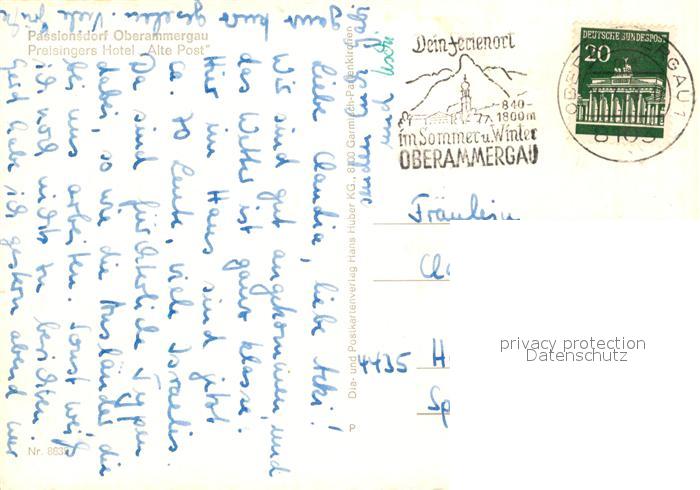 Passionsdorf Oberammergau
Preisingers Hotel „Alte Post"
Liebe Claudia, liebe
Wir sind gut angekommen, und
das Wetter ist ganz klasse!
Hier im Haus sind jetzt
ca. 70 Leute, viele Israelis
Da sind fürchterliche Typen
dabei, so wie die Ausländer die
bei uns arbeiten. Sonst weiß
ich noch nichts zu berichten.
habe ich gestern abend nur
ganz kurz gesehen. Viele
und
Nr. 863
Dia- und Postkartenverlag Hans Huber KG., 8100 Garmisch-Partenkirchen
P
Dein Ferienort
840-
1800m
im Sommer u. Winter
OBERAMMERGAU
DEUTSCHE BUNDESPOST
20
8103
Fräulein
4435 H
Sp
privacy protection
Datenschutz